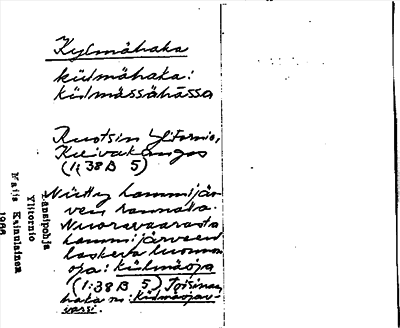 Kylmähaka
külmähaka:
külmässähāssa
Ruotsin Ylitornio,
Kuivakangas
(1:38 B 5)
Niitty hammijär-
ven rannata.
Nuoravaarasta
hammijärveen
laskeva luonnon
oja: külmäoja
(1:38 B 5) Toisinaan
haka n: külmäojar-
varsi.
Länsipohja
Ylitornio
Maija Kainulainen
1966